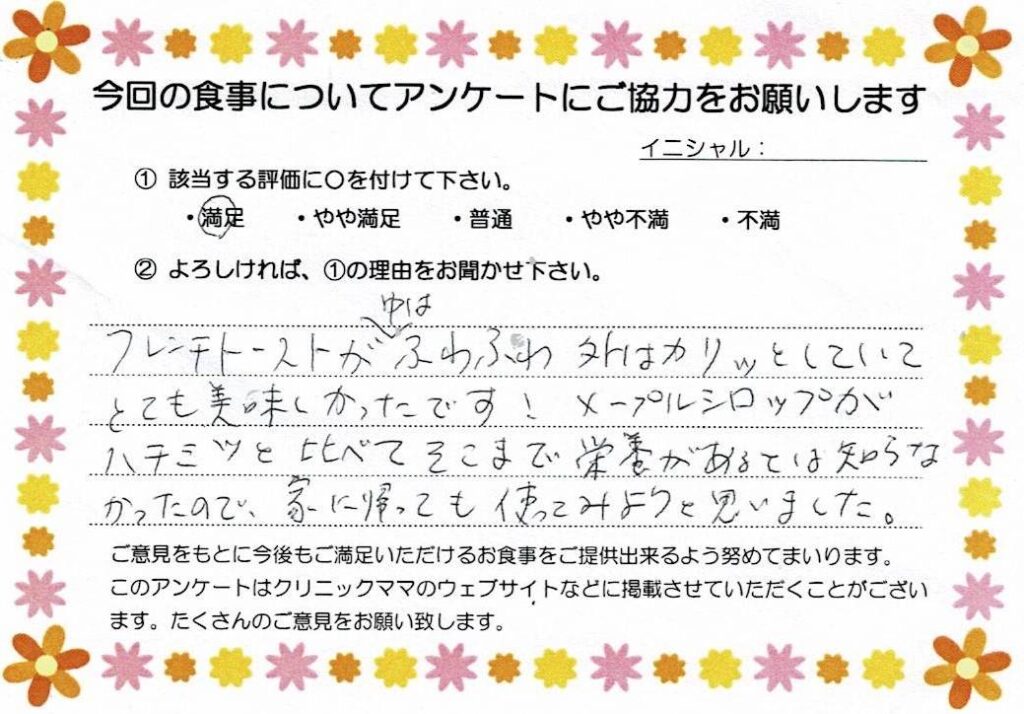 今回の食事についてアンケートにご協力をお願いします
イニシャル：
① 該当する評価に〇を付けて下さい。
・満足 ・やや満足 ・普通 ・やや不満 ・不満
② よろしければ、①の理由をお聞かせ下さい。
中は
フレンチトーストが ふわふわ 外はカリッとしていて
とても美味しかったです！ メープルシロップが
ハチミツと比べてそこまで栄養があるとは知らな
かったので、家に帰っても使ってみようと思いました。
ご意見をもとに今後もご満足いただけるお食事をご提供出来るよう努めてまいります。
このアンケートはクリニックママのウェブサイトなどに掲載させていただくことがござい
ます。たくさんのご意見をお願い致します。